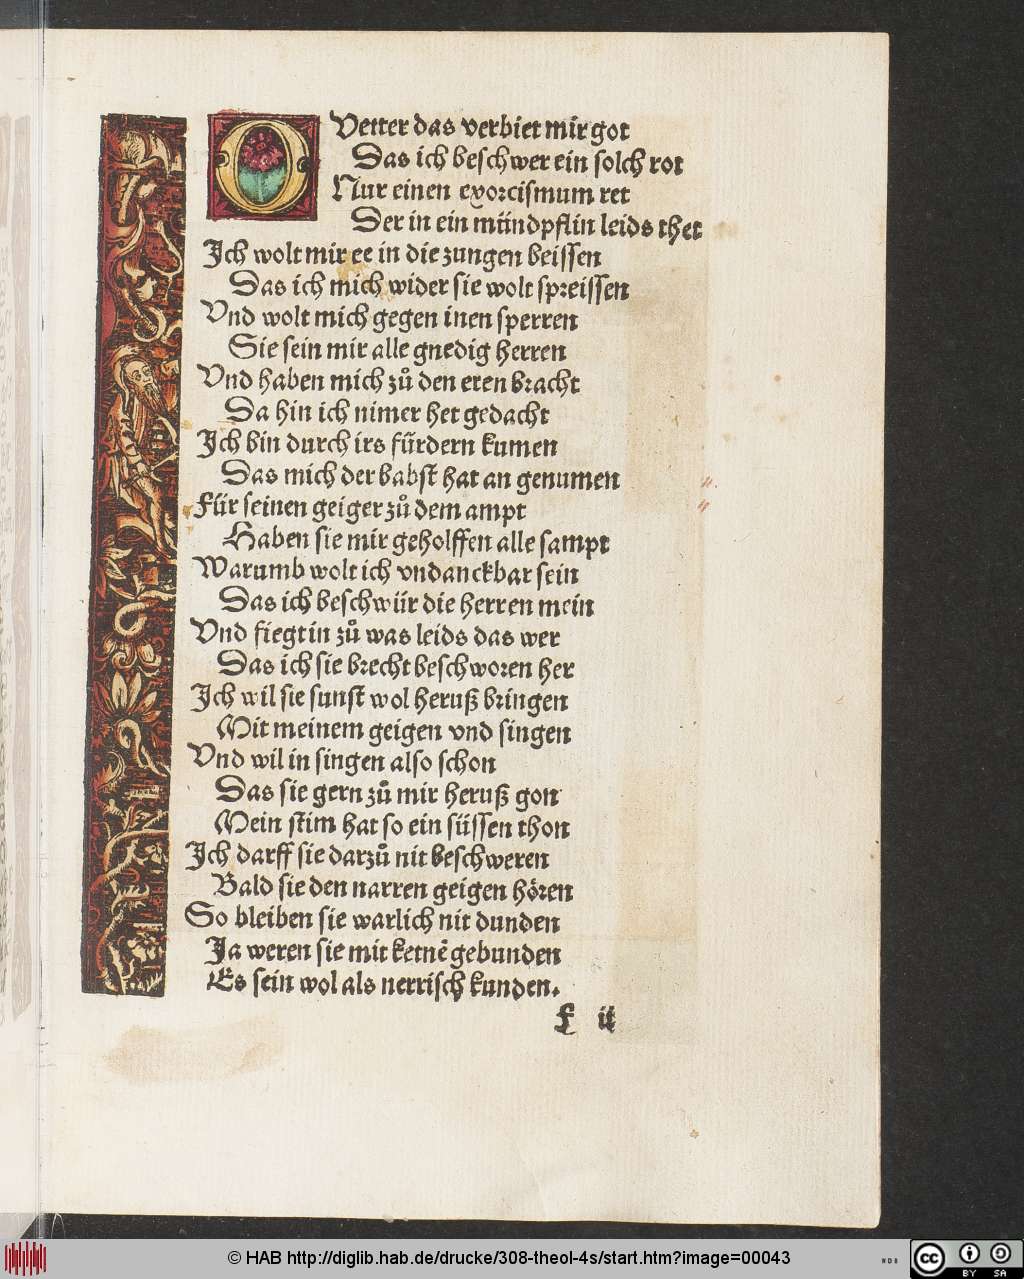 O Vetter das verbiet mir got
Das ich beschwer ein solch rot
Nur einen exorcismum ret
Der in ein mündpflin leids thet
Ich wolt mir ee in die zungen beissen
Das ich mich wider sie wolt spreissen
Vnd wolt mich gegen inen sperren
Sie sein mir alle gnedig herren
Vnd haben mich zů den eren bracht
Da hin ich nimer het gedacht
Ich bin durch irs fürdern kumen
Das mich der babst hat an genumen
Für seinen geiger zů dem ampt
Haben sie mir geholffen alle sampt
Warumb wolt ich vndanckbar sein
Das ich beschwür die herren mein
Vnd fiegt in zů was leids das wer
Das ich sie brecht beschworen her
Ich wil sie sunst wol heruß bringen
Mit meinem geigen vnd singen
Vnd wil in singen also schon
Das sie gern zů mir heruß gon
Mein stim hat so ein süssen thon
Ich darff sie darzů nit beschweren
Bald sie den narren geigen hören
So bleiben sie warlich nit dunden
Ja weren sie mit ketnē gebunden
Es sein wol als nerrisch kunden.
f ij
© HAB http://diglib.hab.de/drucke/308-theol-4s/start.htm?image=00043
WDB
cc BY SA